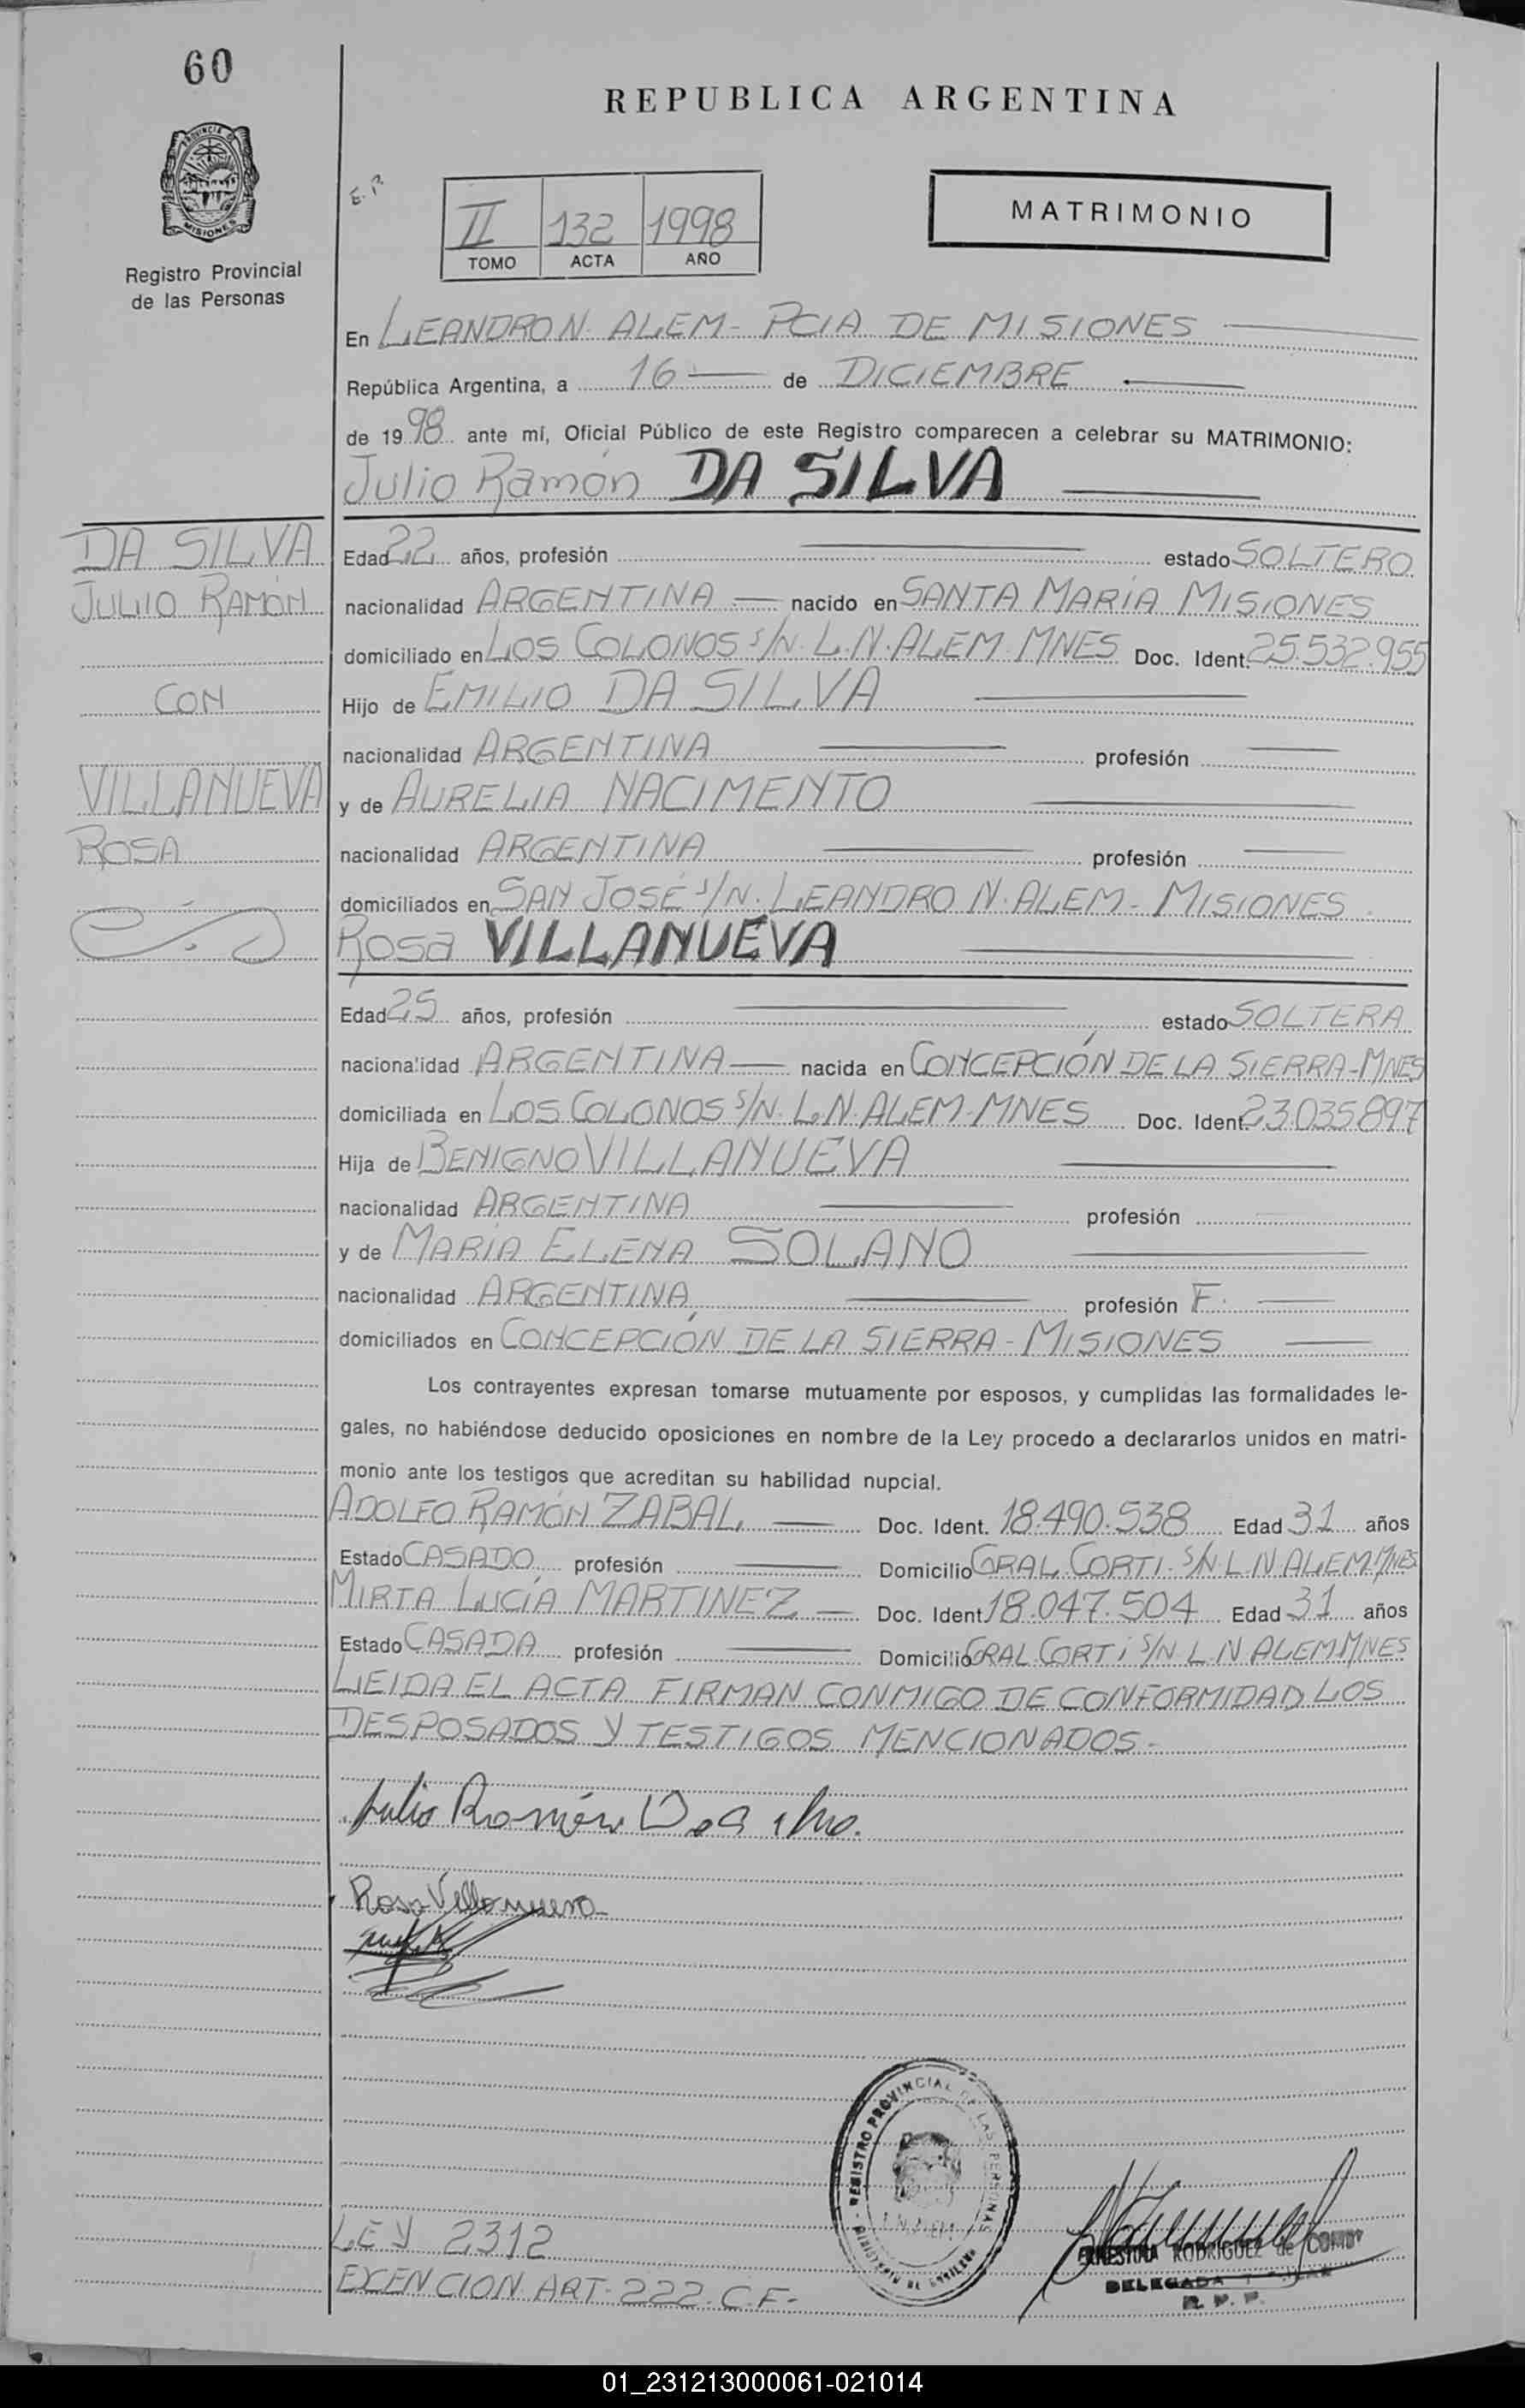 60
REPUBLICA ARGENTINA
PROVINCIA DE
MISIONES
E.P.
II 132 1998
TOMO ACTA AÑO
MATRIMONIO
Registro Provincial
de las Personas
En LEANDRO N. ALEM - PCIA DE MISIONES
República Argentina, a 16 de DICIEMBRE
de 1998 ante mí, Oficial Público de este Registro comparecen a celebrar su MATRIMONIO:
Julio Ramón DA SILVA
DA SILVA
JULIIO RAMÓN
CON
VILLANUEVA
ROSA
Edad 22 años, profesión estado SOLTERO
nacionalidad ARGENTINA nacido en SANTA MARÍA MISIONES
domiciliado en LOS COLONOS S/N. L.N. ALEM MNES Doc. Ident. 25.532.955
Hijo de EMILIO DA SILVA
nacionalidad ARGENTINA profesión
y de AURELIA NACIMENTO
nacionalidad ARGENTINA profesión
domiciliados en SAN JOSÉ S/N. LEANDRO N. ALEM - MISIONES
Rosa VILLANUEVA
Edad 25 años, profesión estado SOLTERA
nacionalidad ARGENTINA nacida en CONCEPCIÓN DE LA SIERRA-MNES
domiciliada en LOS COLONOS S/N. L.N. ALEM-MNES Doc. Ident. 23.035.897
Hija de BENIGNO VILLANUEVA
nacionalidad ARGENTINA profesión
y de MARÍA ELENA SOLANO
nacionalidad ARGENTINA profesión F.
domiciliados en CONCEPCIÓN DE LA SIERRA - MISIONES
Los contrayentes expresan tomarse mutuamente por esposos, y cumplidas las formalidades le-
gales, no habiéndose deducido oposiciones en nombre de la Ley procedo a declararlos unidos en matri-
monio ante los testigos que acreditan su habilidad nupcial.
ADOLFO RAMÓN ZABAL Doc. Ident. 18.490.538 Edad 31 años
Estado CASADO profesión Domicilio GRAL CORTI. S/N. L N ALEM MNES
MIRTA LUCÍA MARTINEZ Doc. Ident 18.047.504 Edad 31 años
Estado CASADA profesión Domicilio GRAL CORTI S/N L.N ALEM MNES
LEIDA EL ACTA FIRMAN CONMIGO DE CONFORMIDAD LOS
DESPOSADOS Y TESTIGOS MENCIONADOS.-
Julio Ramón Da Silva.
Rosa Villanueva
REGISTRO PROVINCIAL DE LAS PERSONAS
L.N. ALEM
MINISTERIO DE GOBIERNO
ERNESTINA RODRIGUEZ de
DELEGADA
R. P. P.
LEY 2312
EXENCION ART. 222. C.F.-
01_231213000061-021014